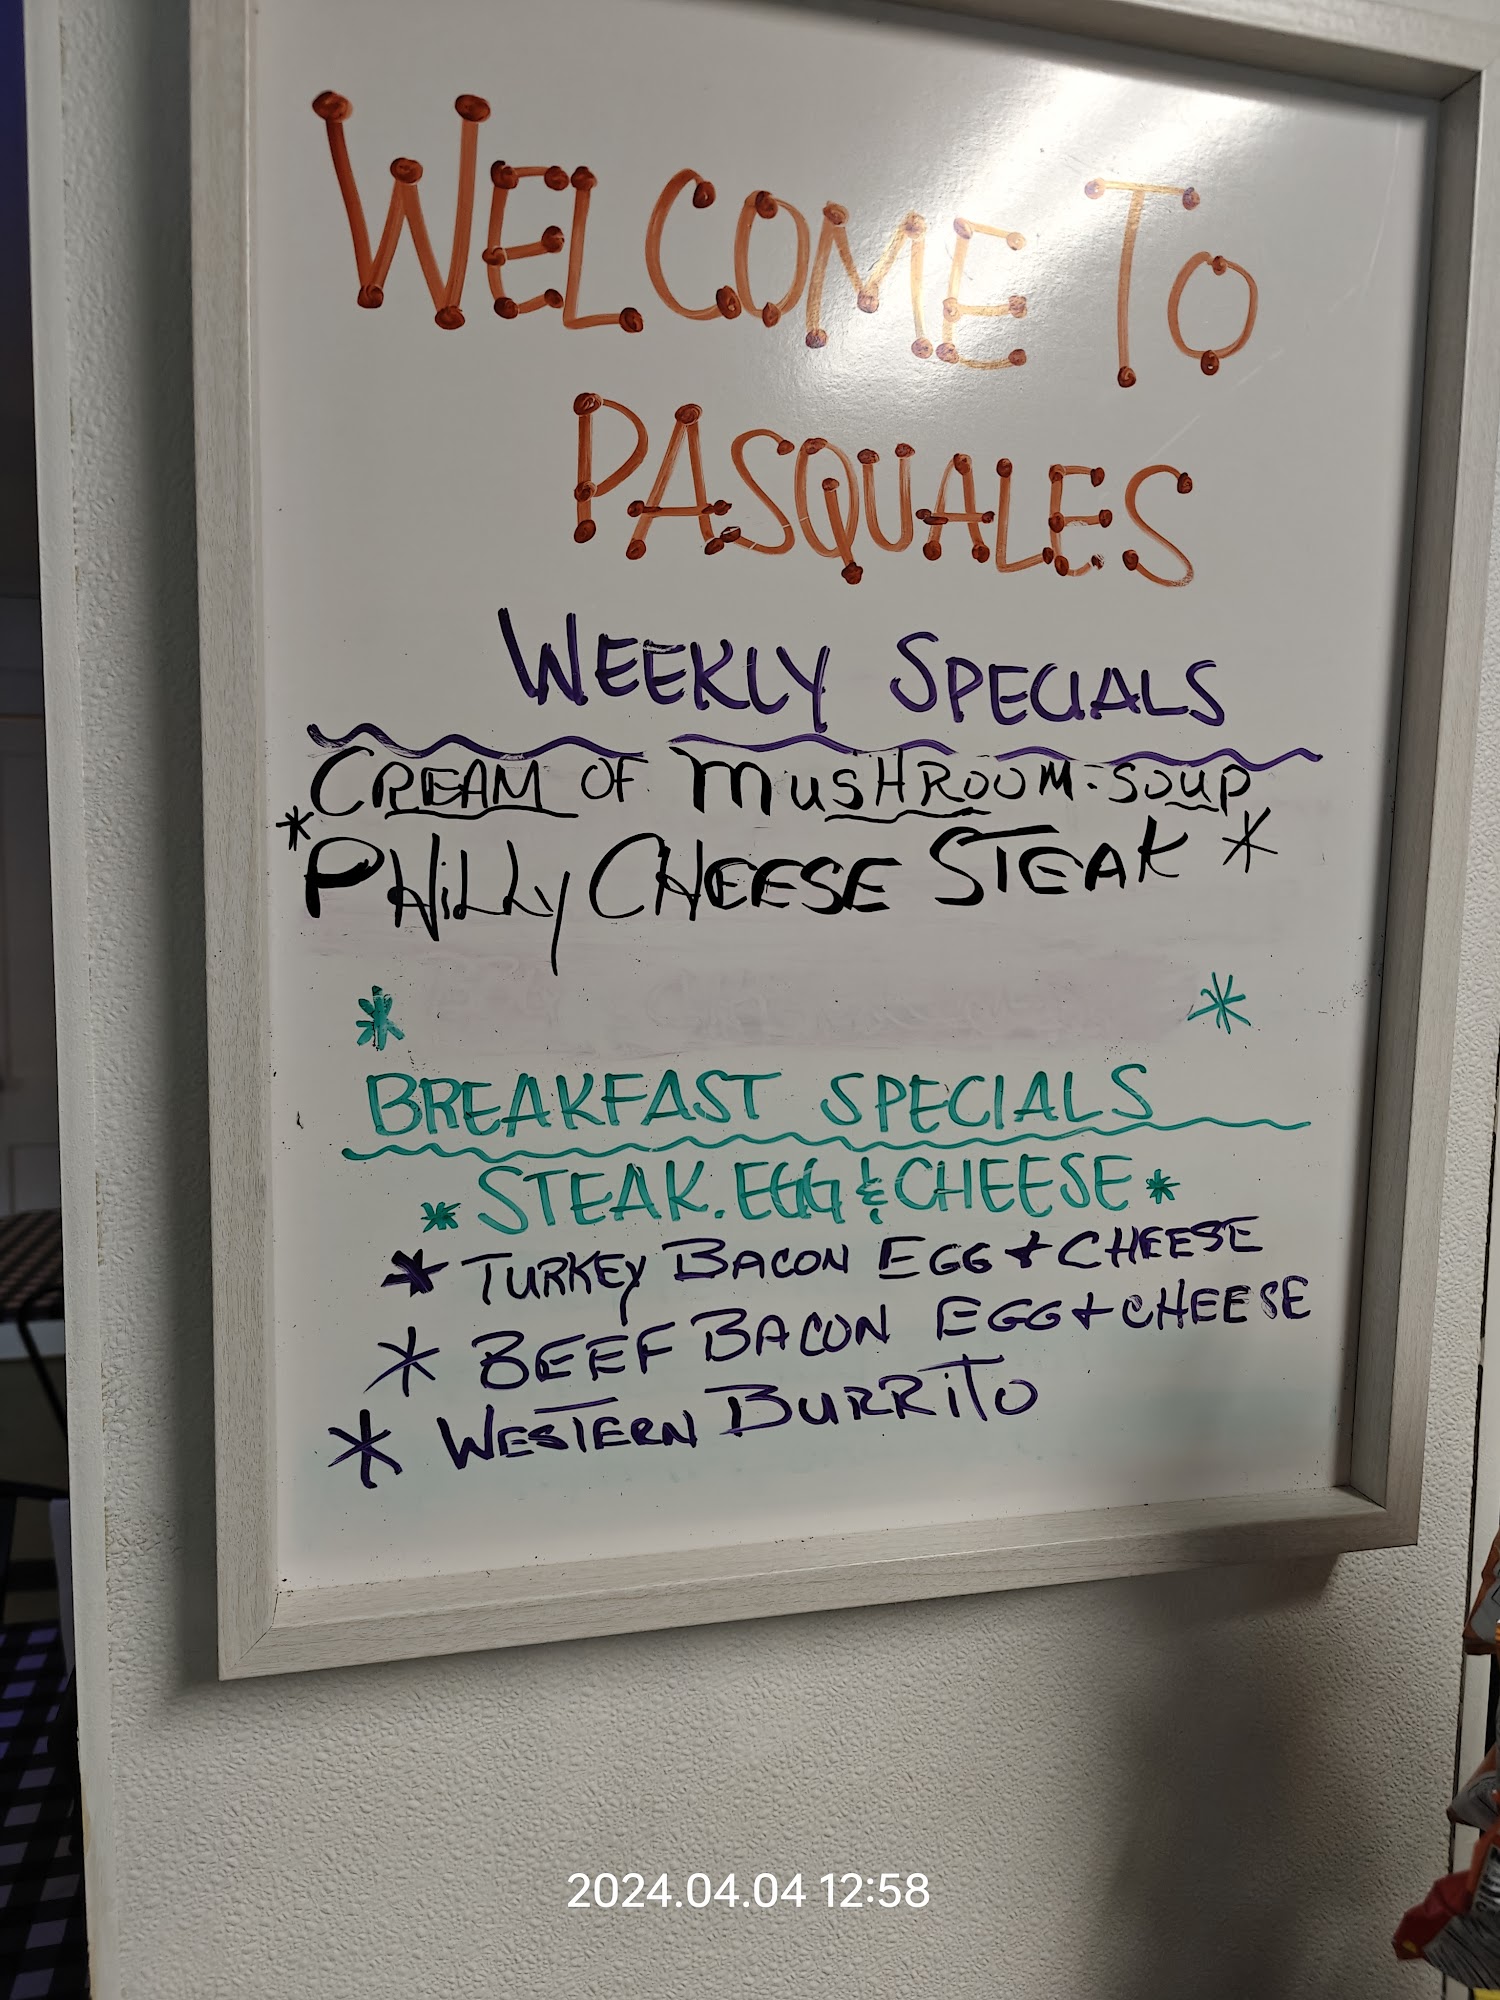 WELCOME TO
PASQUALES
WEEKLY SPECIALS
CREAM OF MUSHROOM-SOUP
*PHiLLy CHEESE STEAK *
* *
BREAKFAST SPECIALS
* STEAK. EGG & CHEESE *
* TURKEY BACON EGG + CHEESE
* BEEF BACON EGG + CHEESE
* WESTERN BURRiTO
2024.04.04 12:58